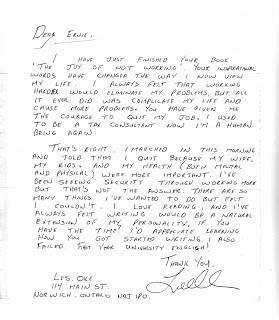 Dear Ernie,
I have just finished your book
"The Joy of Not Working". Your inspirational
words have changed the way I now view
my life. I always felt that working
harder would eliminate my problems, but all
it ever did was complicate my life and
cause more problems. You have given me
the courage to quit my job. I used
to be a tax consultant now I'm a human
being again.
That's right, I marched in this morning
and told them I quit because my wife,
my kids, and my health (both mental
and physical) were more important. I've
been seeking security through working more
but that's not the answer. There are so
many things I've wanted to do but felt
I couldn't. I love reading, and I've
always felt writing would be a natural
extension of my personality. If you
have the time, I'd appreciate learning
how you got started writing. I also
failed first year university English!
Thank you,
Les Oke
114 Main St.
Norwich, Ontario N0J 1P0.